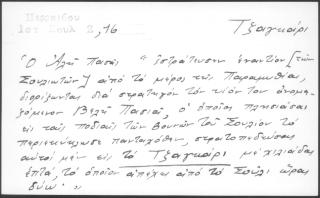 Περραιβου
Ιστ Σουλ 2, 16
Τζαγκάρι
Ὁ Ἀλῆ Πασιᾶς "ἐστράτευσεν ἐναντίον [τῶν
Σουλιωτῶν] ἀπό τό μέρος τῆς Παραμυθίας,
διορίζωντας διά στρατηγόν τόν υἱόν του ὀνομα-
ζόμενον Βελῆ Πασιᾶ, ὁ ὁποῖος πλησιάσας
εἰς τούς πόδας τῶν βουνῶν τοῦ Σουλίου τό
περιεκύκλωσε πανταχόθεν, στρατοπεδεύσας
αὐτός μέν εἰς τό Τζαγκάρι μέ χιλιάδας
ἑπτά, τό ὁποῖον ἀπέχει ἀπό τό Σούλι ὥρας
δύω".